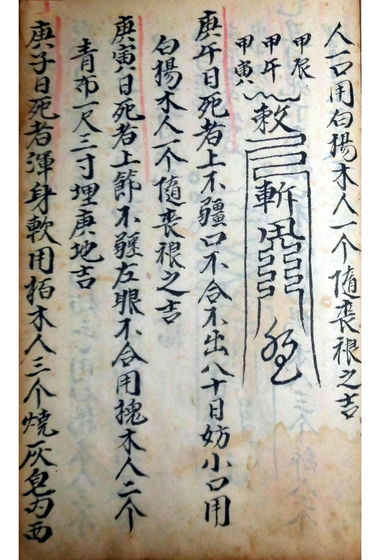 人一口用白揚木人一个随丧禳之吉
甲辰
甲午
甲寅
敕
斬鬼
庚午日死者上不疆口不合不出八十日妨小口用
白揚木人一个随丧禳之吉
庚寅日死者上節不疆左眼不合用槐木人二个
青布一尺三寸埋庚地吉
庚子日死者渾身軟用栢木人三个燒灰皂勺西